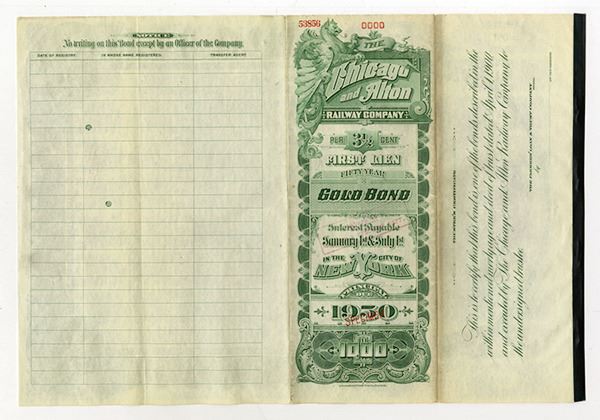 NOTICE
No writing on this Bond except by an Officer of the Company.
DATE OF REGISTRY. IN WHOSE NAME REGISTERED. TRANSFER AGENT.
53856 0000
THE
Chicago
and Alton
RAILWAY COMPANY
3½ PER CENT
FIRST LIEN
FIFTY YEAR
GOLD BOND
Interest Payable
January 1st & July 1st
IN THE CITY OF
NEW YORK
PRINCIPAL
DUE
1950
SPECIMEN
1000
TRUSTEE'S CERTIFICATE
This is to certify that this bond is one of the bonds described in the
within mentioned mortgage and deed of trust dated April 1, 1900
and executed by The Chicago and Alton Railway Company to
the undersigned trustee.
THE FARMERS' LOAN & TRUST COMPANY
by